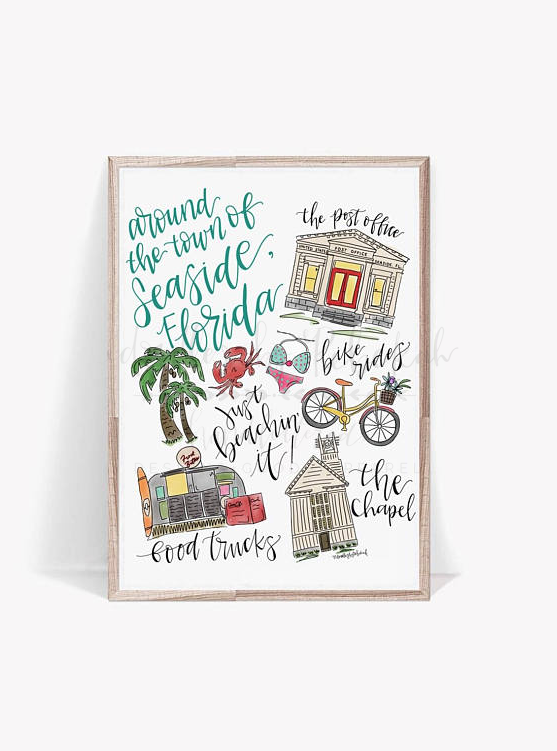 around
the town of
Seaside,
Florida
the post office
UNITED STATES
POST OFFICE
SEASIDE, FL
bike
rides
just
beachin'
it!
the
chapel
food trucks